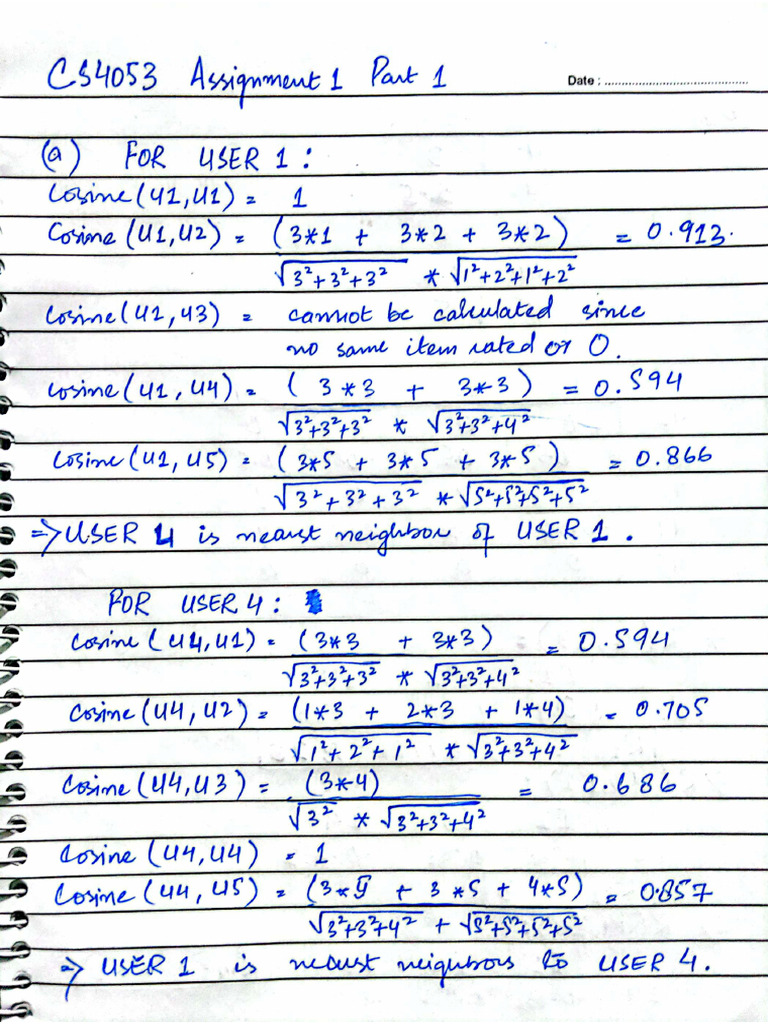 CS4053 Assignment 1 Part 1 Date : ..........................................
(a) FOR USER 1 :
Cosine (U1,U1) = 1
Cosine (U1,U2) = (3*1 + 3*2 + 3*2) = 0.913.
√3²+3²+3² * √1²+2²+1²+2²
Cosine (U1,U3) = cannot be calculated since
no same item rated or 0.
Cosine (U1,U4) = ( 3*3 + 3*3 ) = 0.594
√3²+3²+3² * √3²+3²+4²
Cosine (U1,U5) = (3*5 + 3*5 + 3*5 ) = 0.866
√3²+3²+3² * √5²+5²+5²+5²
=> USER 4 is nearest neighbor of USER 1 .
FOR USER 4 :
Cosine (U4,U1) = (3*3 + 3*3) = 0.594
√3²+3²+3² * √3²+3²+4²
Cosine (U4,U2) = (1*3 + 2*3 + 1*4) = 0.705
√1²+2²+1² * √3²+3²+4²
Cosine (U4,U3) = (3*4) = 0.686
√3² * √3²+3²+4²
Cosine (U4,U4) = 1
Cosine (U4,U5) = (3*5 + 3*5 + 4*5) = 0.857
√3²+3²+4² + √5²+5²+5²+5²
=> USER 1 is nearest neighbors to USER 4.